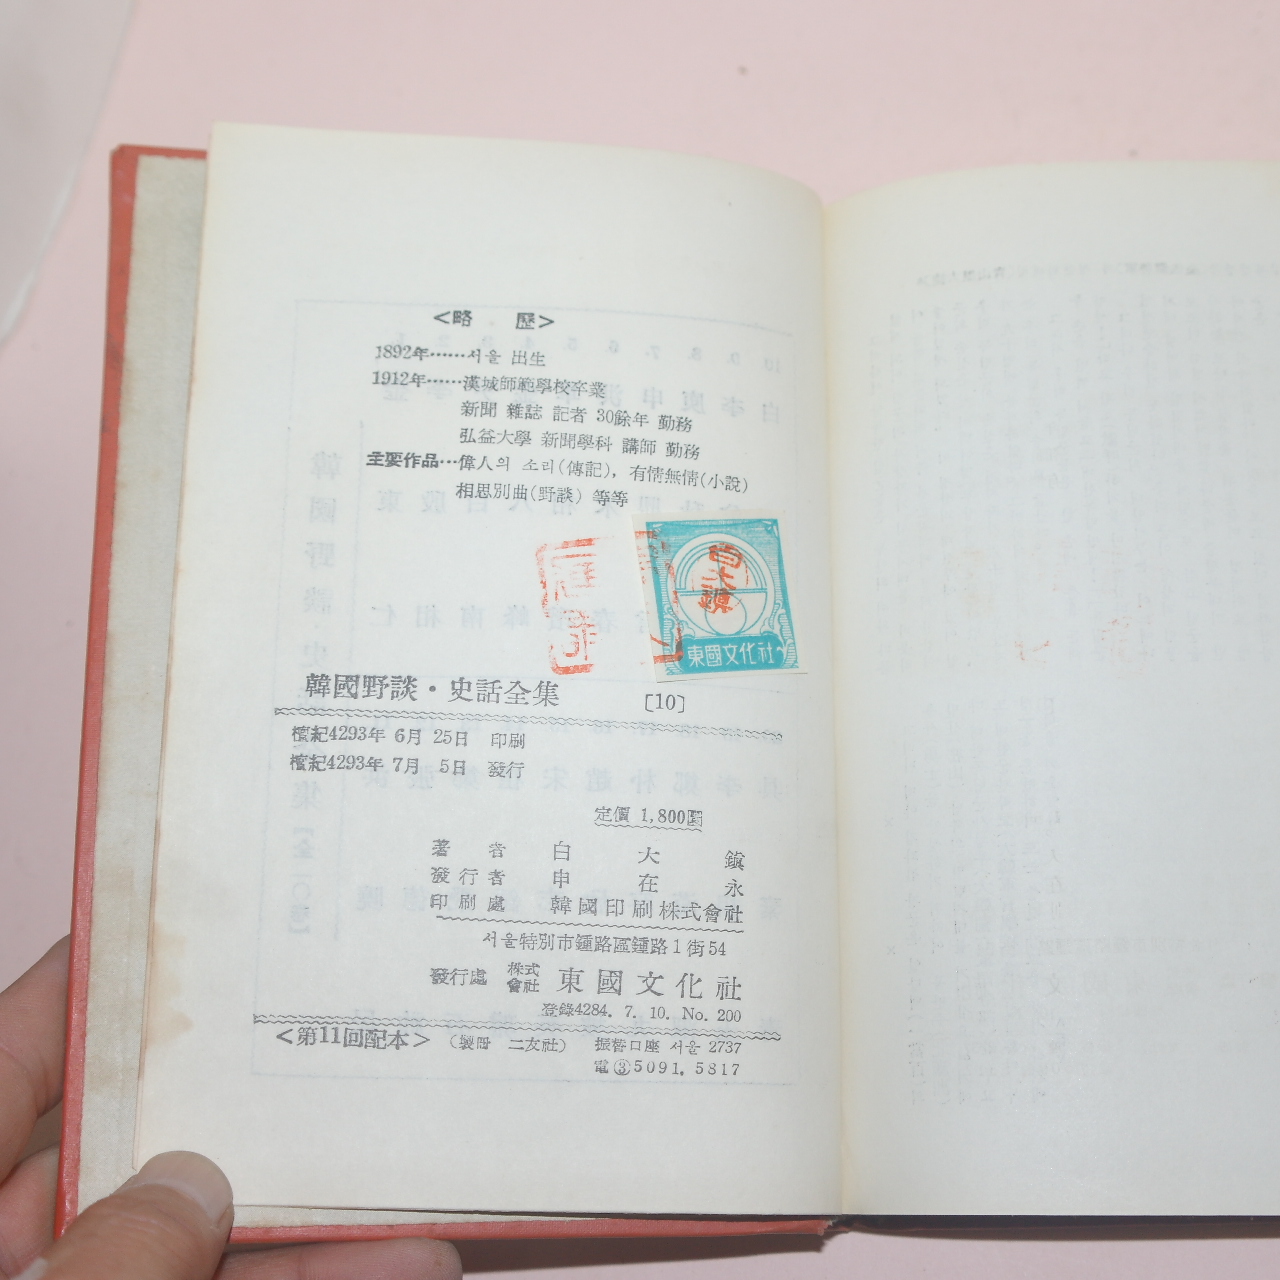 <略 歷>
1892年……서울 出生
1912年……漢城師範學校卒業
新聞 雜誌 記者 30餘年 勤務
弘益大學 新聞學科 講師 勤務
主要作品…偉人의 소리(傳記), 有情無情(小說)
相思別曲(野談) 等等
白大鎭
東國文化社
韓國野談・史話全集 [10]
檀紀4293年 6月 25日 印刷
檀紀4293年 7月 5日 發行
定價 1,800圜
著者 白大鎭
發行者 申在永
印刷處 韓國印刷株式會社
서울特別市鍾路區鍾路1街54
發行處 株式會社 東國文化社
登錄4284. 7. 10. No. 200
<第11回配本> (製冊 二友社) 振替口座 서울 2737
電③5091. 5817